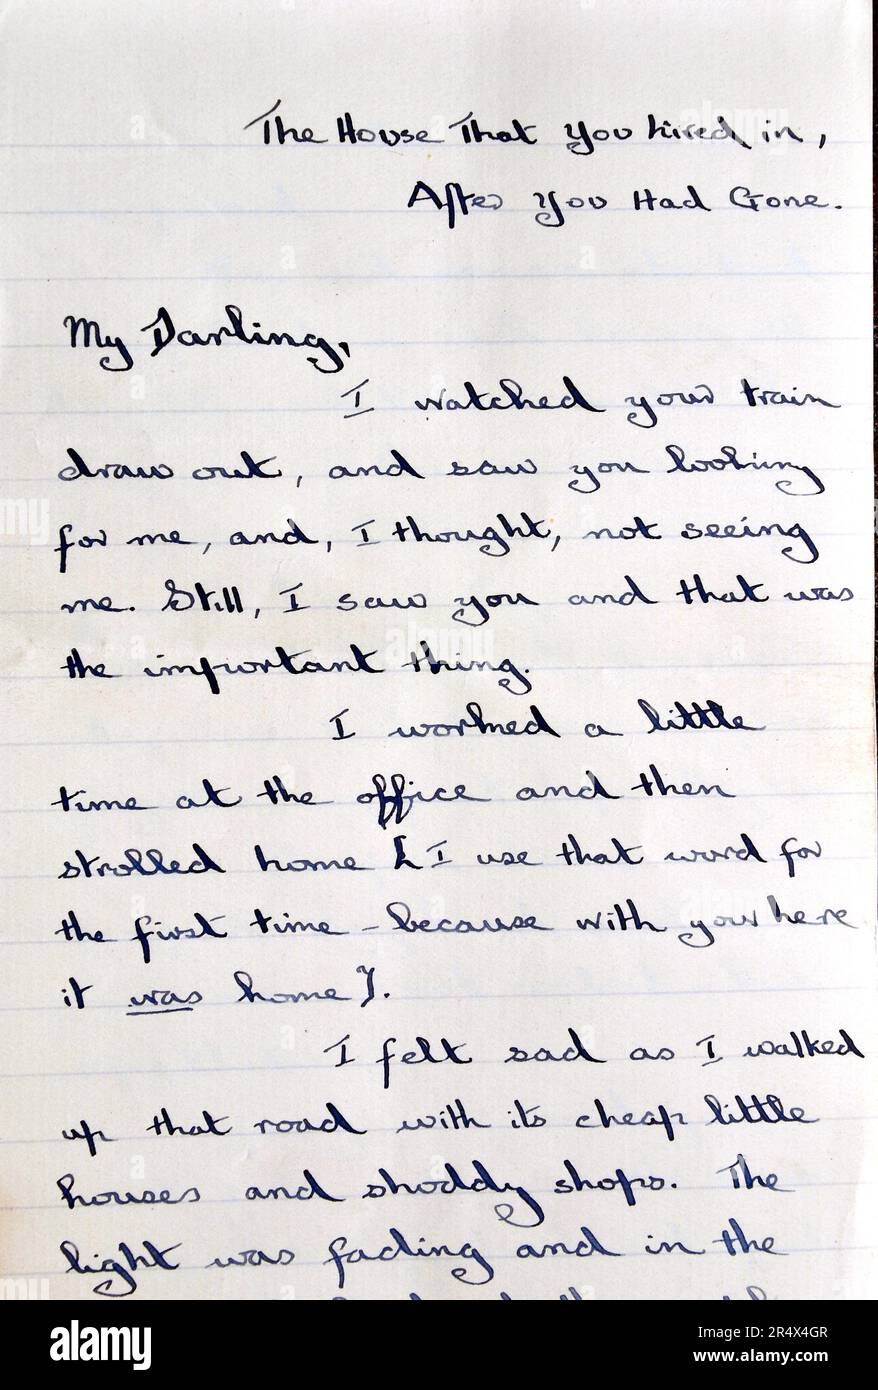 The House That You lived in,
After You Had Gone.
My Darling,
I watched your train
draw out, and saw you looking
for me, and, I thought, not seeing
me. Still, I saw you and that was
the important thing.
I worked a little
time at the office and then
strolled home [ I use that word for
the first time - because with your here
it was home ].
I felt sad as I walked
up that road with its cheap little
houses and shoddy shops. The
light was fading and in the
alamy
Image ID: 2R4X4GR
www.alamy.com